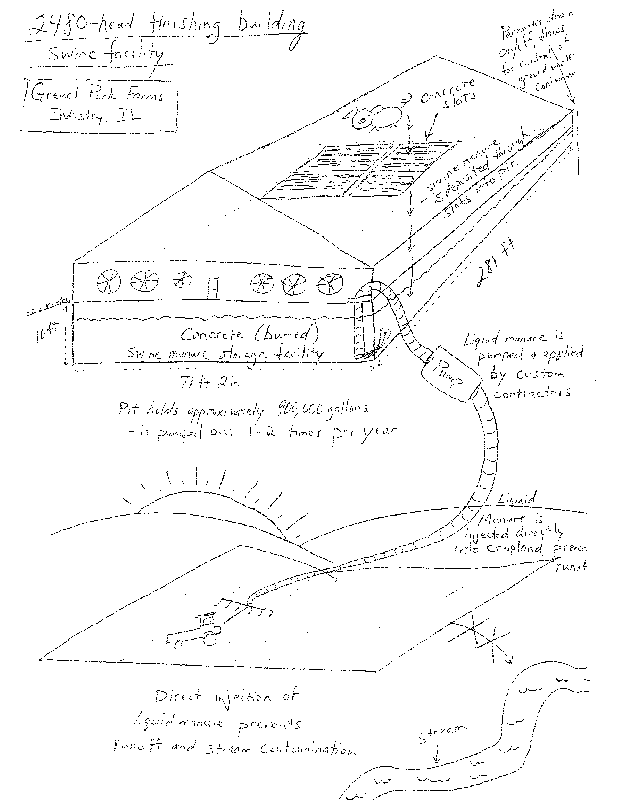 2480-head finishing building
Swine facility
Grand Park Farms
Industry, IL
Perimeter drain
only. It allows
for custom of
ground water
Concrete
slats
Swine manure
deposited through
slats into pit.
281 ft
10 ft
Concrete (buried)
Swine manure storage facility
71 ft 2 in
Pit holds approximately 900,000 gallons
- is pumped out 1-2 times per year
Pump
Liquid manure is
pumped & applied
by custom
contractors
Liquid
Manure is
injected directly
into cropland
runoff
Direct injection of
liquid manure prevents
runoff and stream contamination
Stream